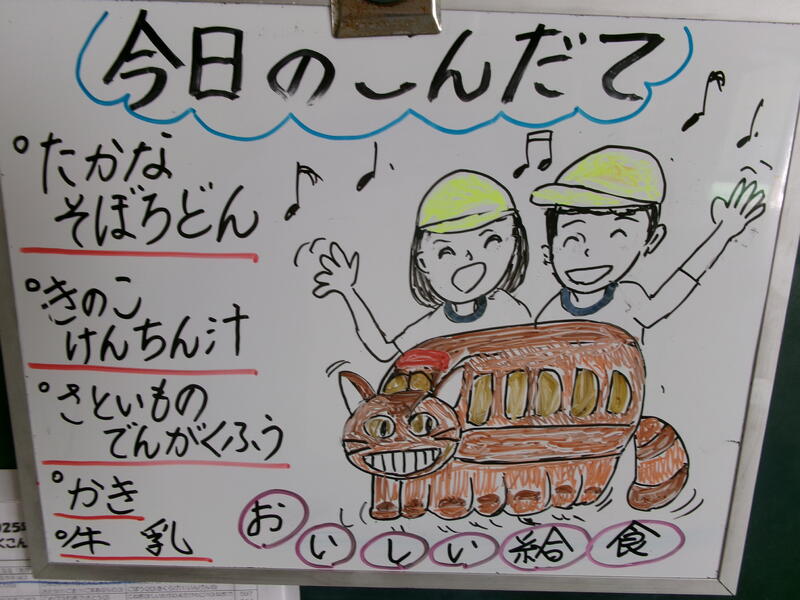 今日のこんだて
たかな
そぼろどん
きのこ
けんちん汁
さといもの
でんがくふう
かき
牛乳
おいしい給食